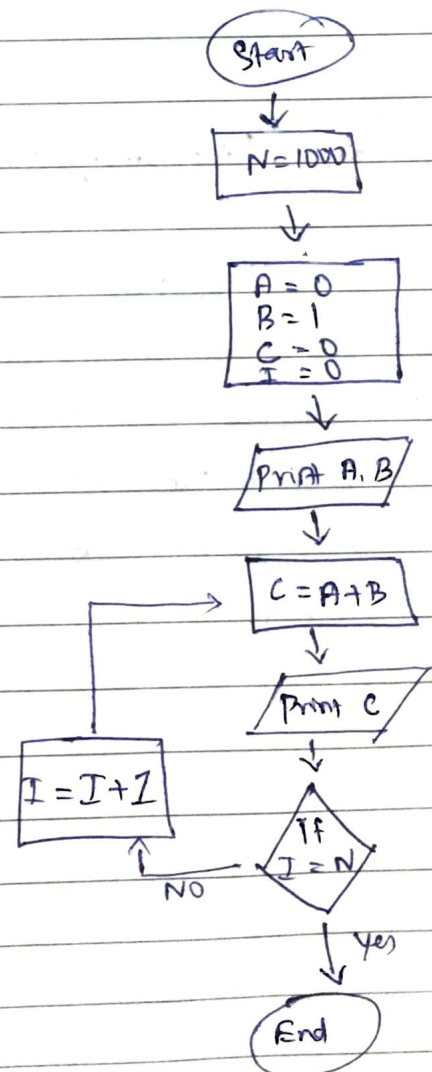 Start
N=1000
A = 0
B = 1
C = 0
I = 0
Print A, B
C = A+B
Print C
I = I+1
If
I = N
NO
Yes
End